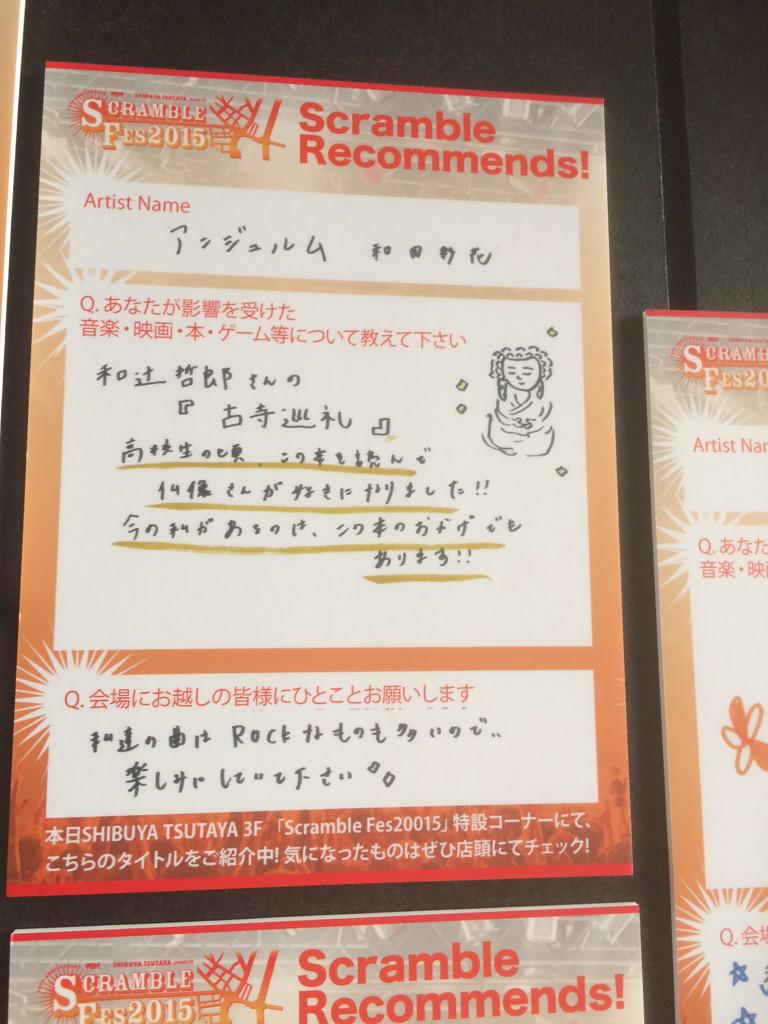 SHIBUYA TSUTAYA
SCRAMBLE
FES2015
Scramble
Recommends!
Artist Name
アンジュルム 和田彩花
Q. あなたが影響を受けた
音楽・映画・本・ゲーム等について教えて下さい
和辻哲郎さんの
『古寺巡礼』
高校生の頃、この本を読んで
仏像さんが好きになりました!!
今の私があるのは、この本のおかげでも
あります!!
Q. 会場にお越しの皆様にひとことお願いします
私達の曲はROCKなものも多いので、
楽しみにしていて下さい。
本日SHIBUYA TSUTAYA 3F 「Scramble Fes20015」特設コーナーにて、
こちらのタイトルをご紹介中! 気になったものはぜひ店頭にてチェック!
SHIBUYA TSUTAYA
SCRAMBLE
FES2015
Scramble
Recommends!
SCRAMB
FES20
Artist Nar
Q. あなた
音楽・映
Q. 会場